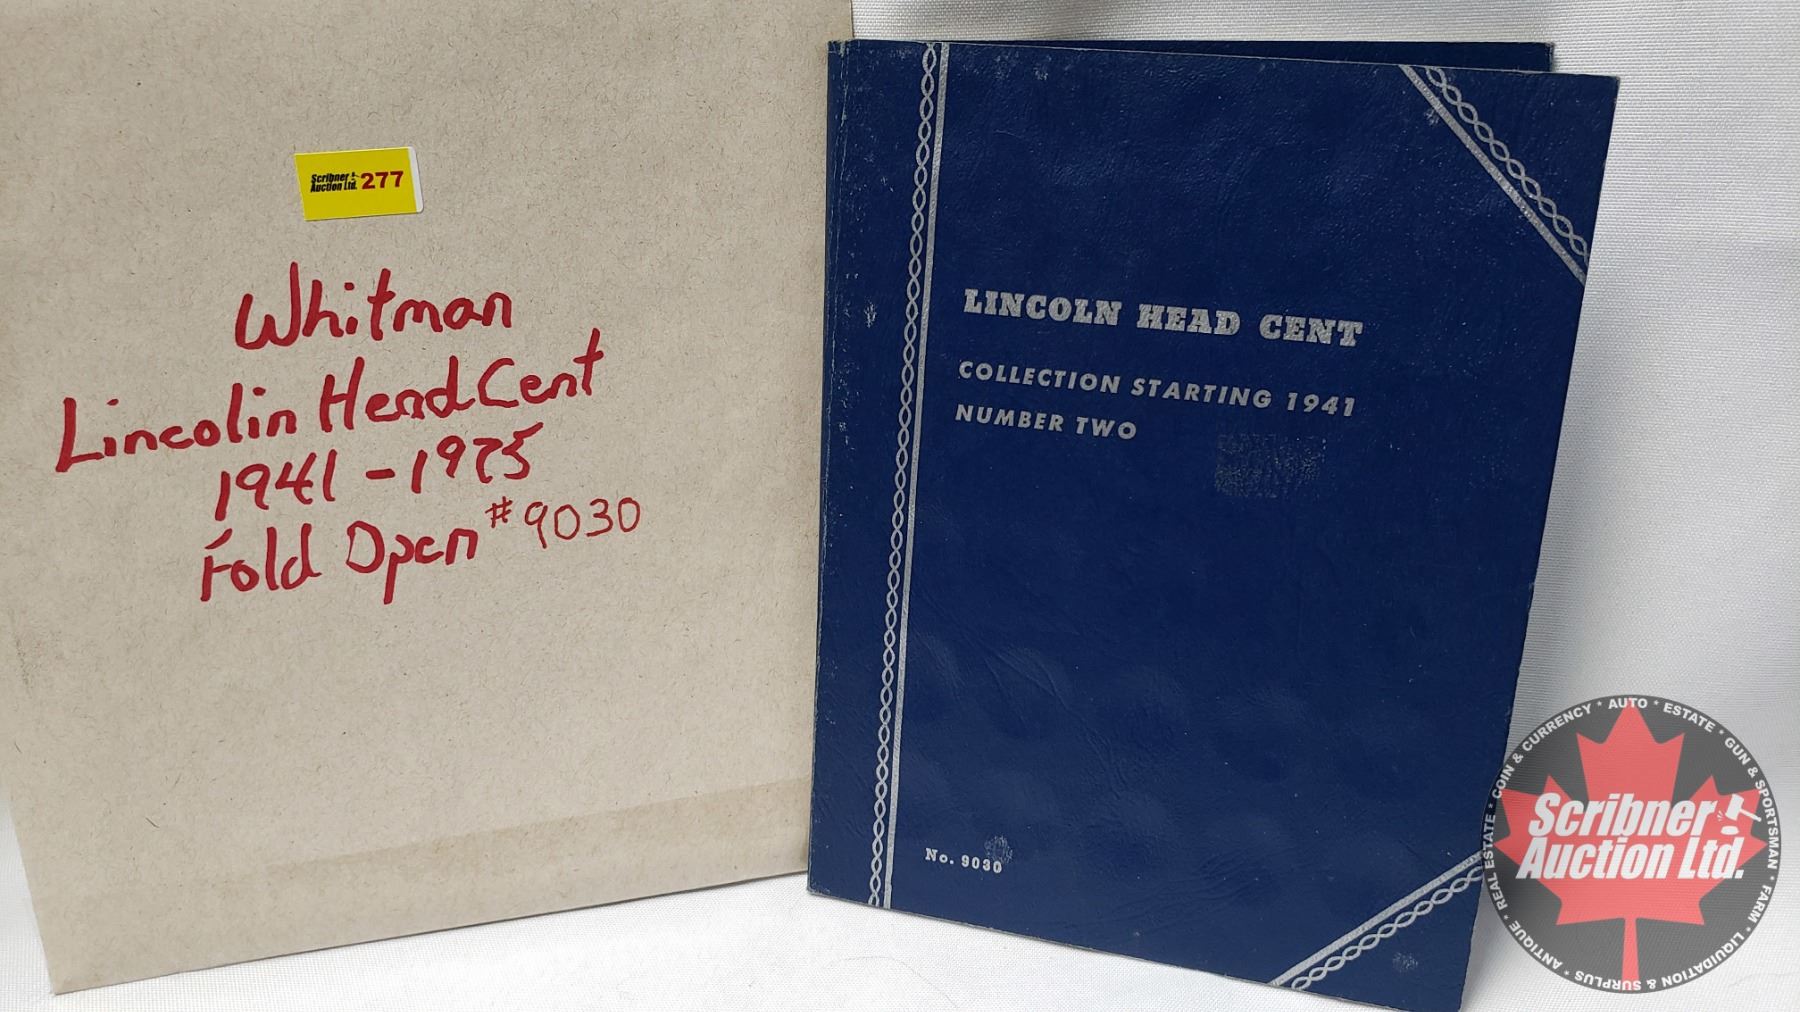 Scribner
Auction Ltd. 277
Whitman
Lincolin Head Cent
1941-1975
Fold Open #9030
LINCOLN HEAD CENT
COLLECTION STARTING 1941
NUMBER TWO
No. 9030
REAL ESTATE * COIN & CURRENCY * AUTO * ESTATE * GUN & SPORTSMAN * FARM * LIQUIDATION & SURPLUS * ANTIQUE *
Scribner
Auction Ltd.